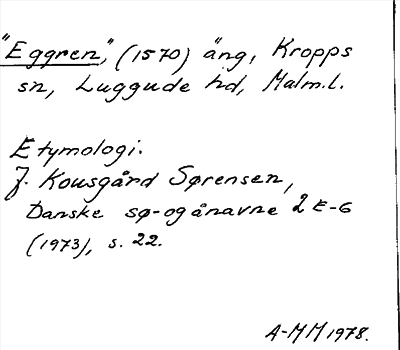 "Eggren", (1570) äng, Kropps
sn, Luggude hd, Malm.l.
Etymologi.
J. Kousgård Sørensen,
Danske sø- og ånavne 2 E-G
(1973), s. 22.
A-MM 1978.